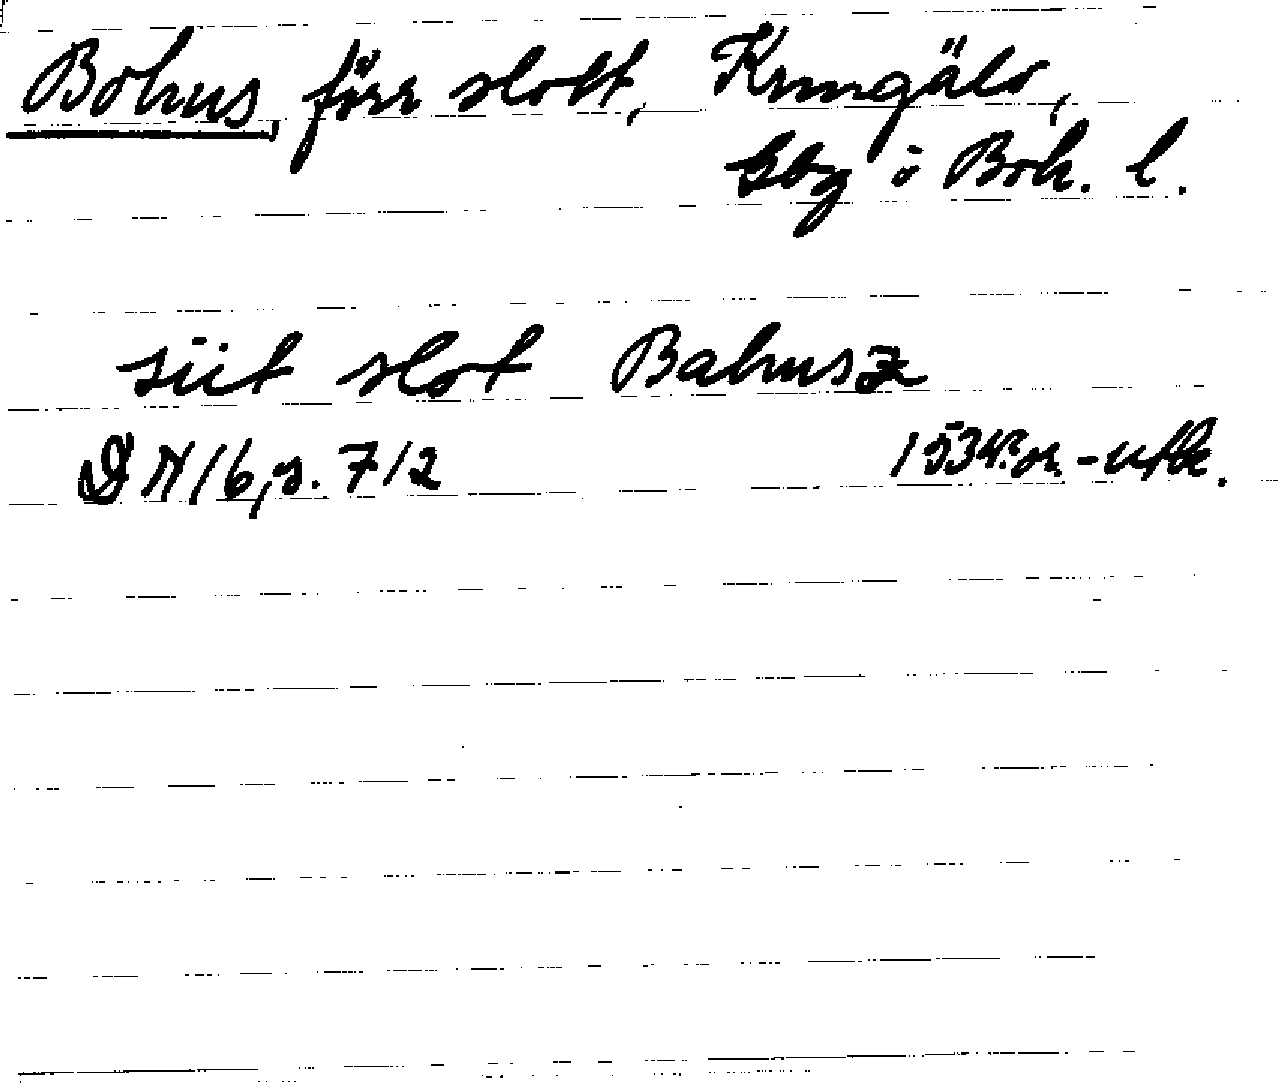 Bohus, förr slott, Kungälv,
Gbg o Boh. l.
siit slot Bahusz
DN 16, s. 712 1534 or. - utdr.